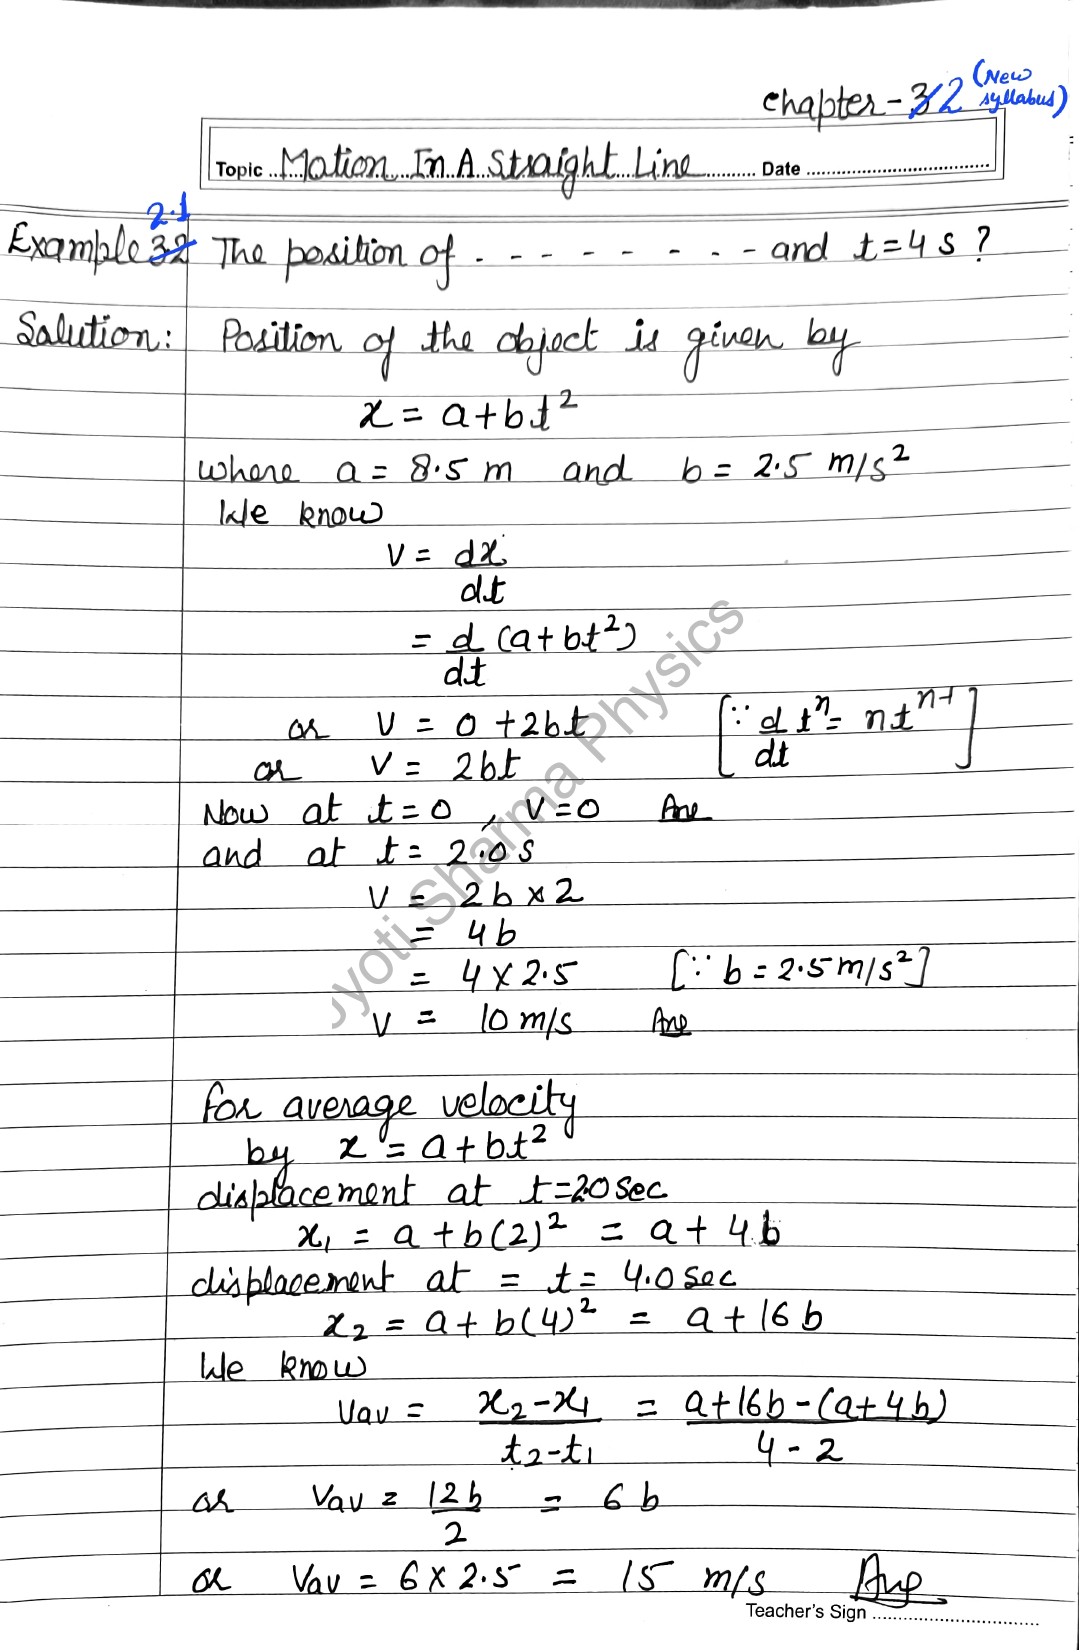 Chapter-3/2 (New syllabus)
Topic Motion In A Straight Line Date
2.1
Example 3.2 The position of - - - - - - - - and t=4s?
Solution: Position of the object is given by
x = a+bt²
where a = 8.5 m and b = 2.5 m/s²
We know
v = dx/dt
= d/dt (a+bt²)
or v = 0+2bt [∵ d/dt tⁿ = ntⁿ⁻¹]
or v = 2bt
Now at t=0, v=0 Ans
and at t = 2.0s
v = 2b×2
= 4b
= 4×2.5 [∵ b=2.5m/s²]
v = 10 m/s Ans
for average velocity
by x = a+bt²
displacement at t=2.0sec
x₁ = a+b(2)² = a+4b
displacement at = t= 4.0sec
x₂ = a+b(4)² = a+16b
We know
Vav = x₂-x₁/t₂-t₁ = a+16b-(a+4b)/4-2
or Vav = 12b/2 = 6b
or Vav = 6×2.5 = 15 m/s Ans
Teacher's Sign
Jyoti Sharma Physics